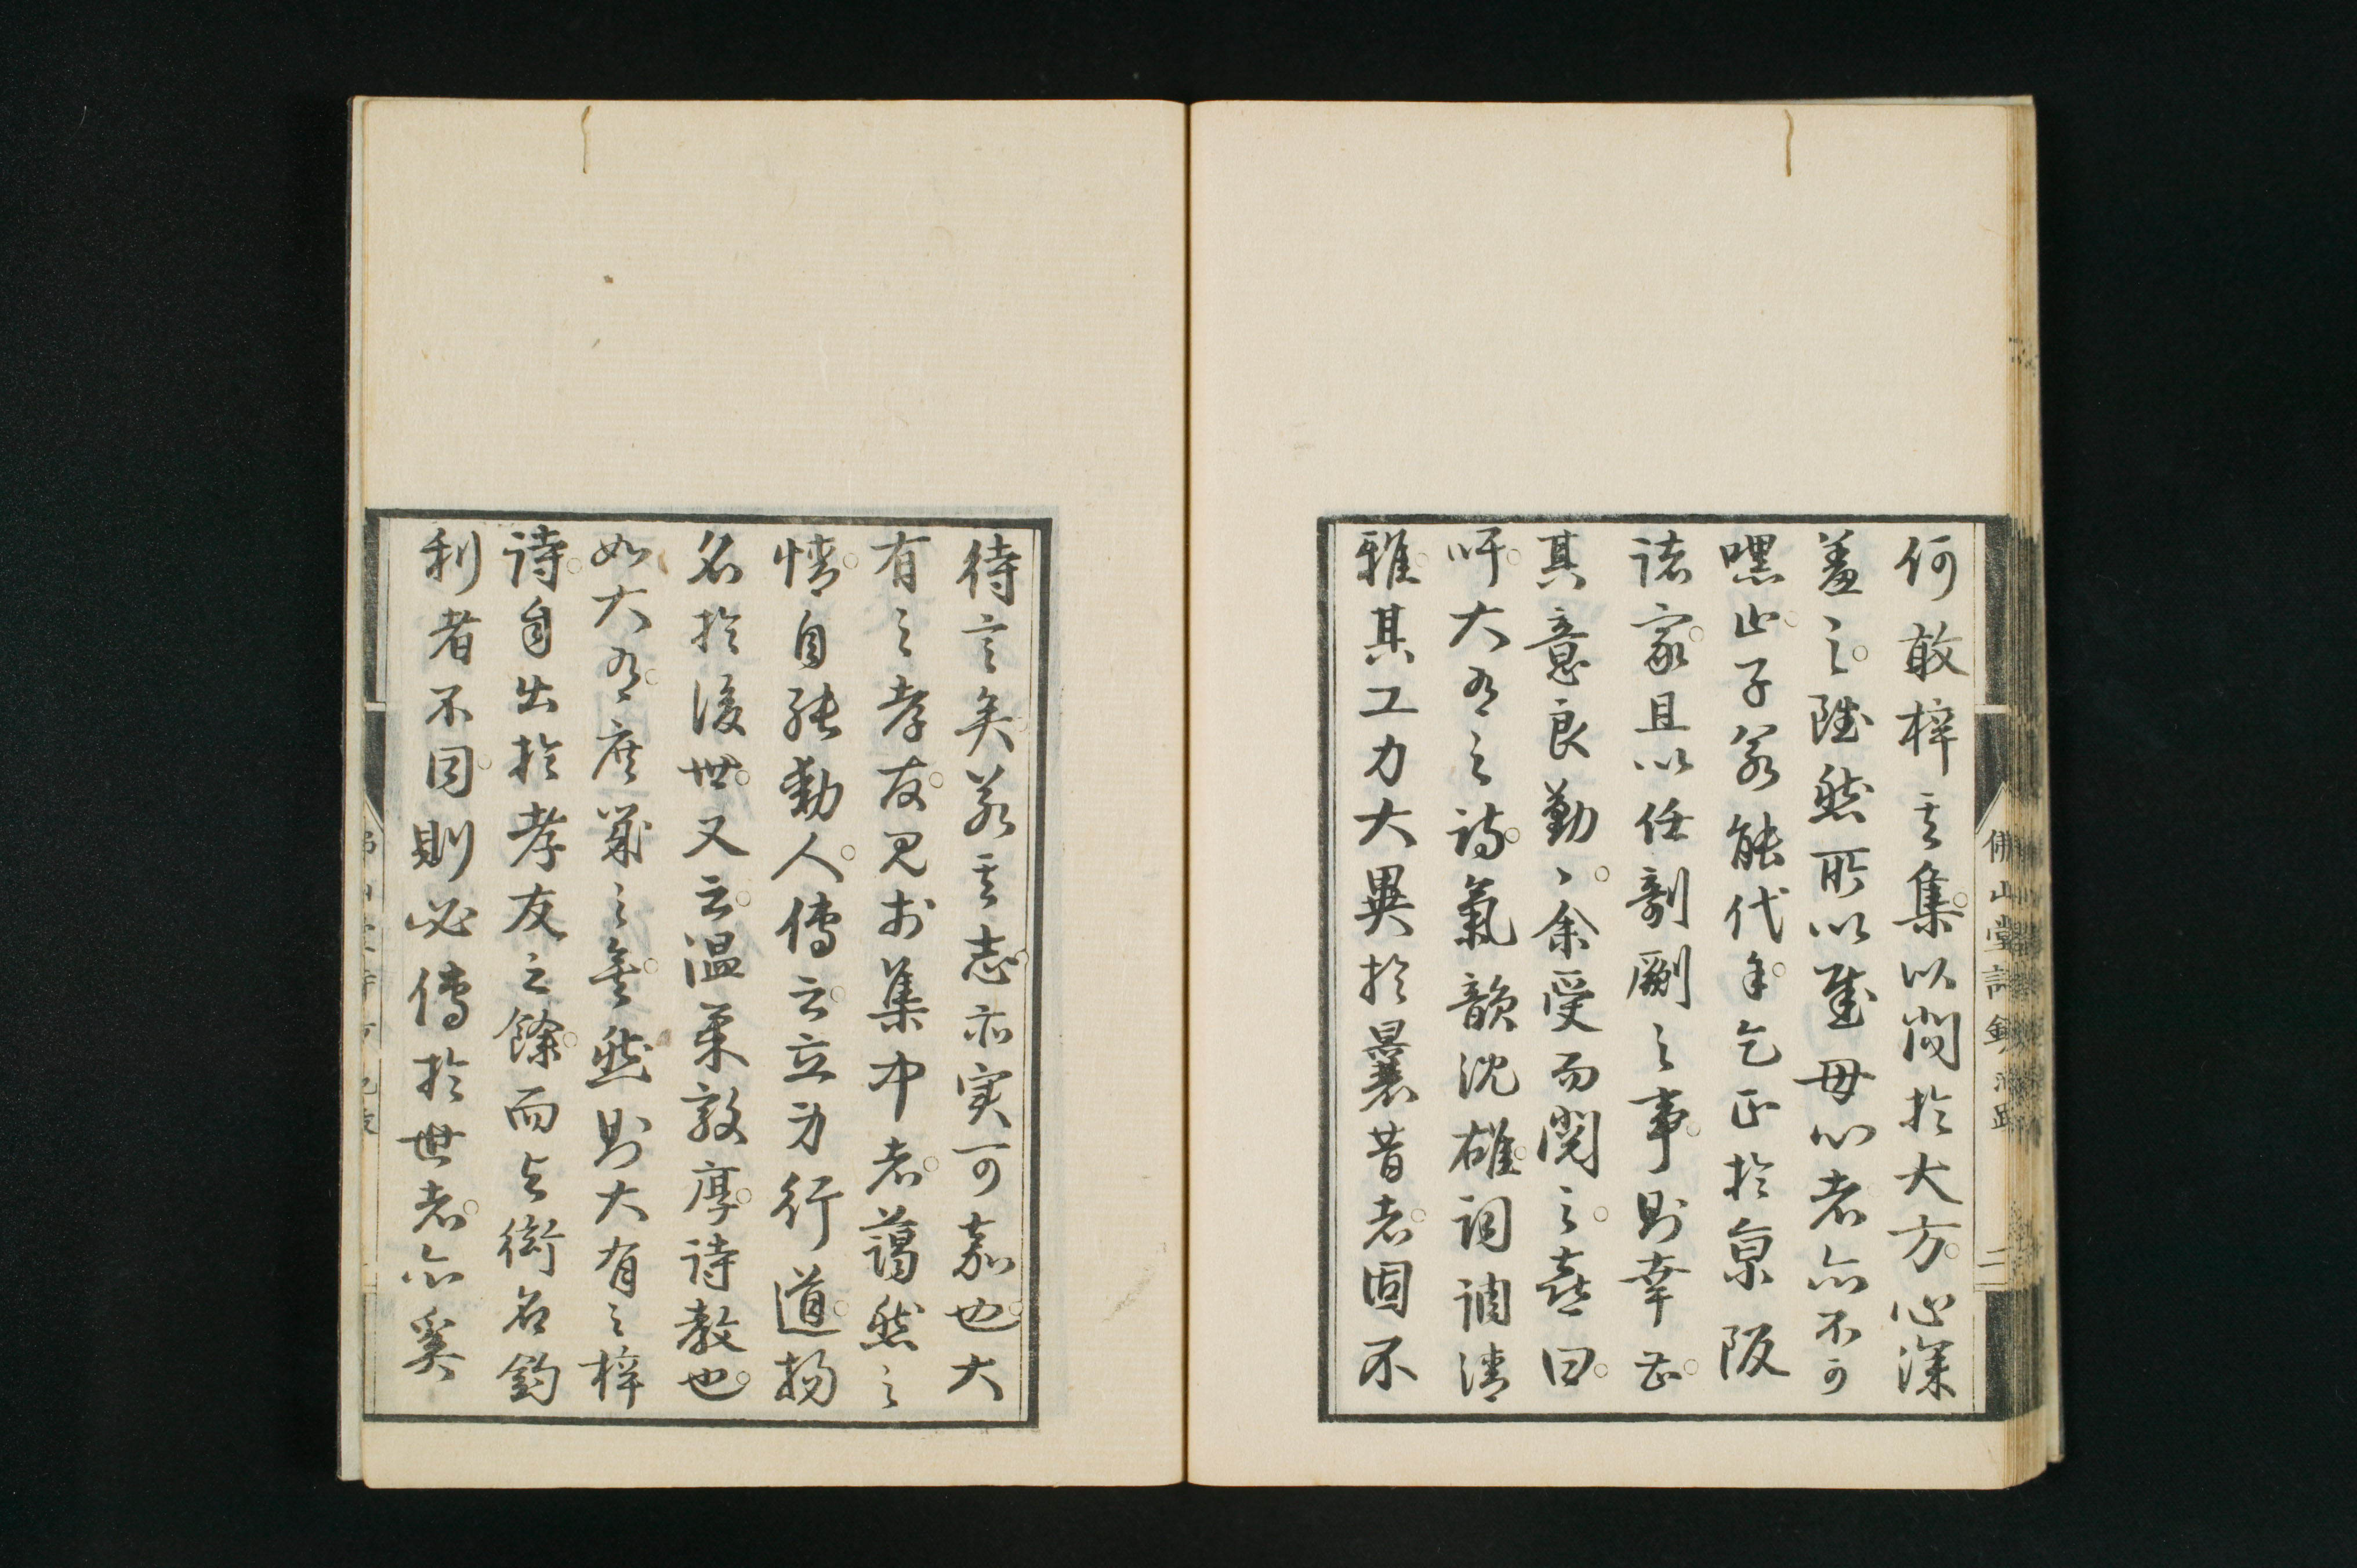 何敢梓其集以問於大方心深
羞之雖然所以
嘿止子若能代手乞正於京阪
諸家且以任剞劂之事則幸甚
其意良勤〻余受而閱之喜曰
吁大有之詩氣韻沈雄詞調清
雅其工力大異於曩昔者固不
待言矣若其志亦実可嘉也大
有之孝友見於集中者藹然之
情自能動人傳云立身行道揚
名於後世又云温柔敦厚詩教也
如大有庶幾之矣然則大有之梓
詩自出於孝友之餘而与衒名釣
利者不同則必傳於世者亦奚
佛山堂詩鈔
二